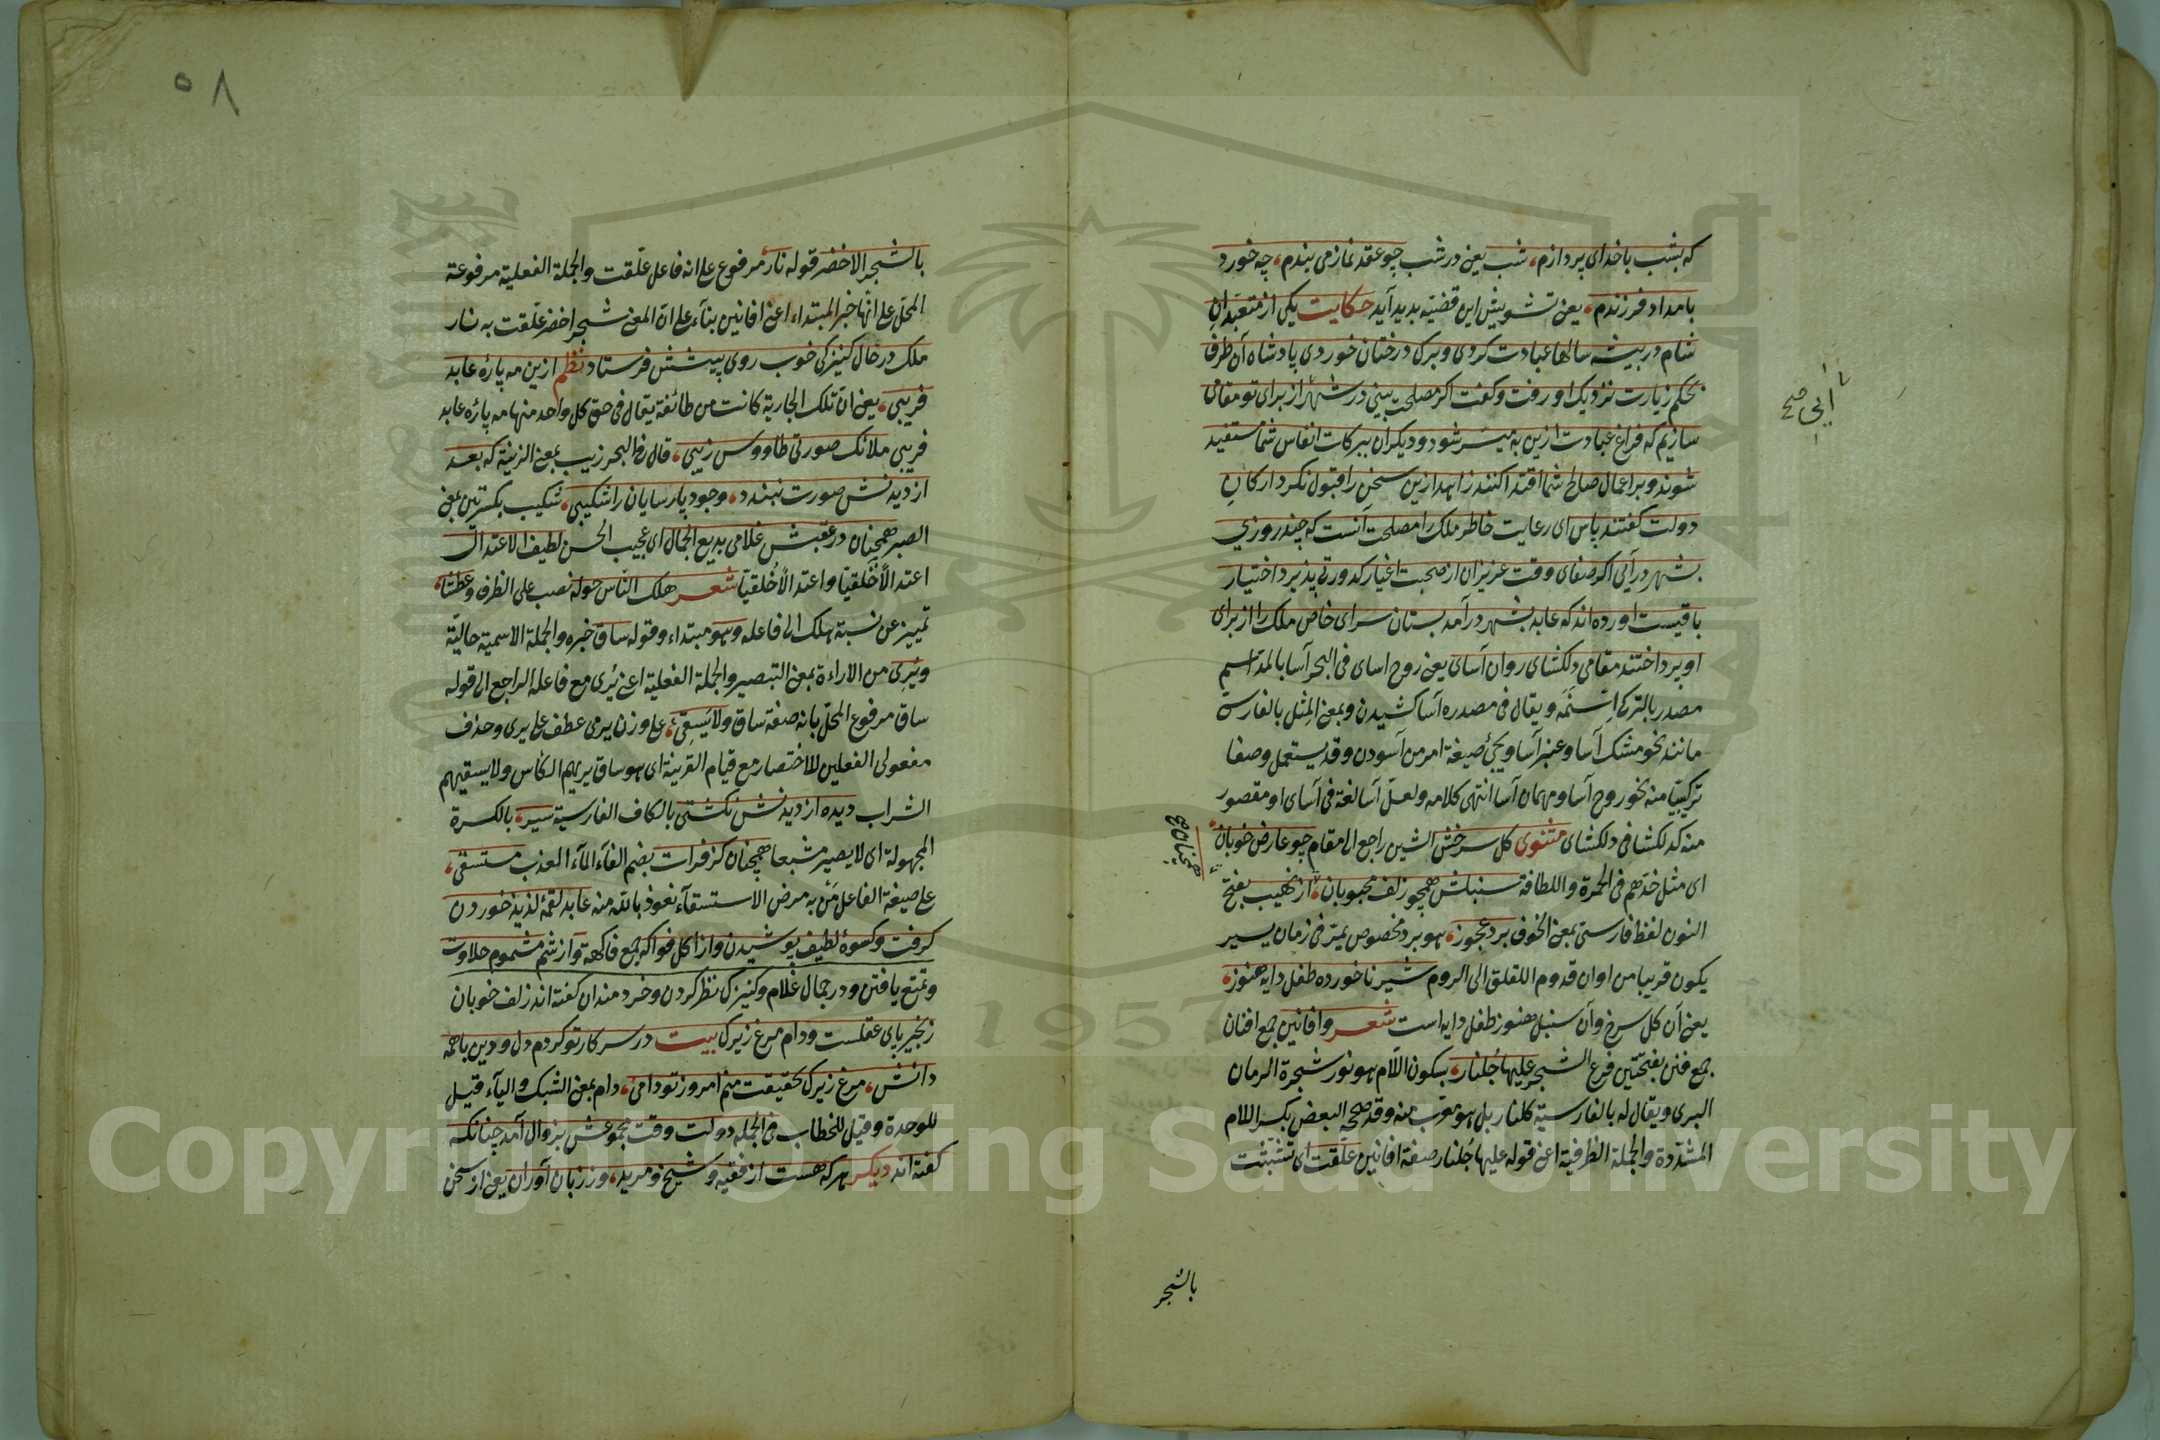 که بشب با خدای پردازم، شب یعنی در شب چو عقد نماز می بندم، چه خورد
بامداد فرزندم، یعنی تشویش این قضیه بدید آید حکایت یکی از متعبدان
شام در بیشه سالها عبادت کردی و برک درختان خوردی پادشاه آن طرف
بحکم زیارت نزدیک او رفت و کفت اکر مصلحت بینی در شهر از برای تو مقامی
سازیم که فراغ عبادت ازین به میسر شود و دیکران ببرکات انفاس شما مستفید
شوند و بر اعمال صالح شما اقتدا کنند زاهد ازین سخن را قبول نکرد ارکان
دولت کفتند پاس ای رعایت خاطر ملک را مصلحت آنست که چند روزی
بشهر در آیی اکر صفای وقت عزیزان از صحبت اغیار کدورتی پذیرد اختیار
باقیست اورده اند که عابد بشهر در آمد بستان سرای خاص ملک را از برای
او پرداختند مقامی دلکشای روان آسای یعنی روح اسای فی البحر آسا بالمد اسم
مصدر بالترکی اسنمه ویقال فی مصدره آسا کشیدن وبمعنی المثل بالفارسی
مانند نحو مشک آسا وعنبر آسا ویجئ صیغة امر من آسودن وقد یستعمل وصفا
ترکیبیا منه نحو روح آسا ومهمان آسا انتهی کلامه ولعل آسا لغة فی آسای او مقصور
منه کدلکشا فی دلکشای مثنوی کل سرخش الشین راجع الی مقام چو عارض خوبان،
ای مثل خدهم فی الحمرة واللطافة سنبلش همچو زلف محبوبان، از نهیب بفتح
النون لفظ فارسی بمعنی الخوف برد عجوز، هو برد مخصوص یمر فی زمان یسیر
یکون قریبا من اوان قدوم اللقلق الی الروم شیر ناخورده طفل دایه هنوز،
یعنی آن کل سرخ وآن سنبل هنوز طفل دایه است شعر وافانین جمع افنان
جمع فنن بفتحتین فرع الشجر علیها جلنار، بسکون اللام هو نور شجرة الرمان
البری ویقال له بالفارسیة کلنار بل هو معرب منه وقد صححه البعض بکسر اللام
المشددة والجملة الظرفیة اعنی قوله علیها جلنار صفة افانین علقت ای تشبثت
بالشجر
همچنان صح
ابی صح
٥٨
بالشجر الاخضر قوله نار مرفوع علی انه فاعل علقت والجملة الفعلیة مرفوعة
المحل علی انها خبر المبتداء اعنی افانین بناء علی ان المعنی شجر اخضر علقت به نار
ملک در حال کنیزکی خوب روی پیشش فرستاد نظم ازین مه پارۀ عابد
فریبی، یعنی ان تلک الجاریة کانت من طائفة یقال فی حق کل واحد منها مه پارۀ عابد
فریبی ملائک صورتی طاووس زیبی، قال فی البحر زیب بمعنی الزینة که بعد
از دیدنش صورت نبندد، وجود پارسایان را شکیبی، شکیب بکسرتین بمعنی
الصبر همچنان در عقبش غلامی بدیع الجمال ای عجیب الحسن لطیف الاعتدال
اعتدالا خَلقیا واعتدالا خُلقیا شعر هلک الناس حوله نصب علی الظرف وعطشا،
تمییز عن نسبة هلک الی فاعله وهو مبتداء وقوله ساق خبره والجملة الاسمیة حالیة
ویُرِی من الاراءة بمعنی التبصیر والجملة الفعلیة اعنی یُری مع فاعله الراجع الی قوله
ساق مرفوع المحل بانه صفة ساق ولا یسقی، علی وزن یرمی عطف علی یری وحذف
مفعولی الفعلین للاختصار مع قیام القرینة ای هو ساق یریهم الکأس ولا یسقیهم
الشراب دیده از دیدنش نکشتی بالکاف الفارسیة سیر، بالکسرة
المجهولة ای لا یصیر مشبعا همچنان کز فرات بضم الفاء الماء العذب مستسقی،
علی صیغة الفاعل مَن به مرض الاستسقاء نعوذ بالله منه عابد لقمۀ لذیذ خوردن
کرفت وکسوۀ لطیف پوشیدن واز اکل فواکه جمع فاکهة واز شم مشموم حلاوت
وتمتع یافتن ودر جمال غلام وکنیزک نظر کردن وخردمندان کفته اند زلف خوبان
زنجیر پای عقلست ودام مرغ زیرک بیت در سر کار تو کردم دل ودین با همه
دانش، مرغ زیرک بحقیقت منم امروز تو دامی، دام بمعنی الشبک والیاء قیل
للوحدة وقیل للخطاب فی الجمله دولت وقت مجموعش بزوال آمد چنانکه
کفته اند دیکر هر که هست از فقیه وشیخ ومرید، وز زبان آوران یعنی از سخن
Copyright © King Saud University
1957